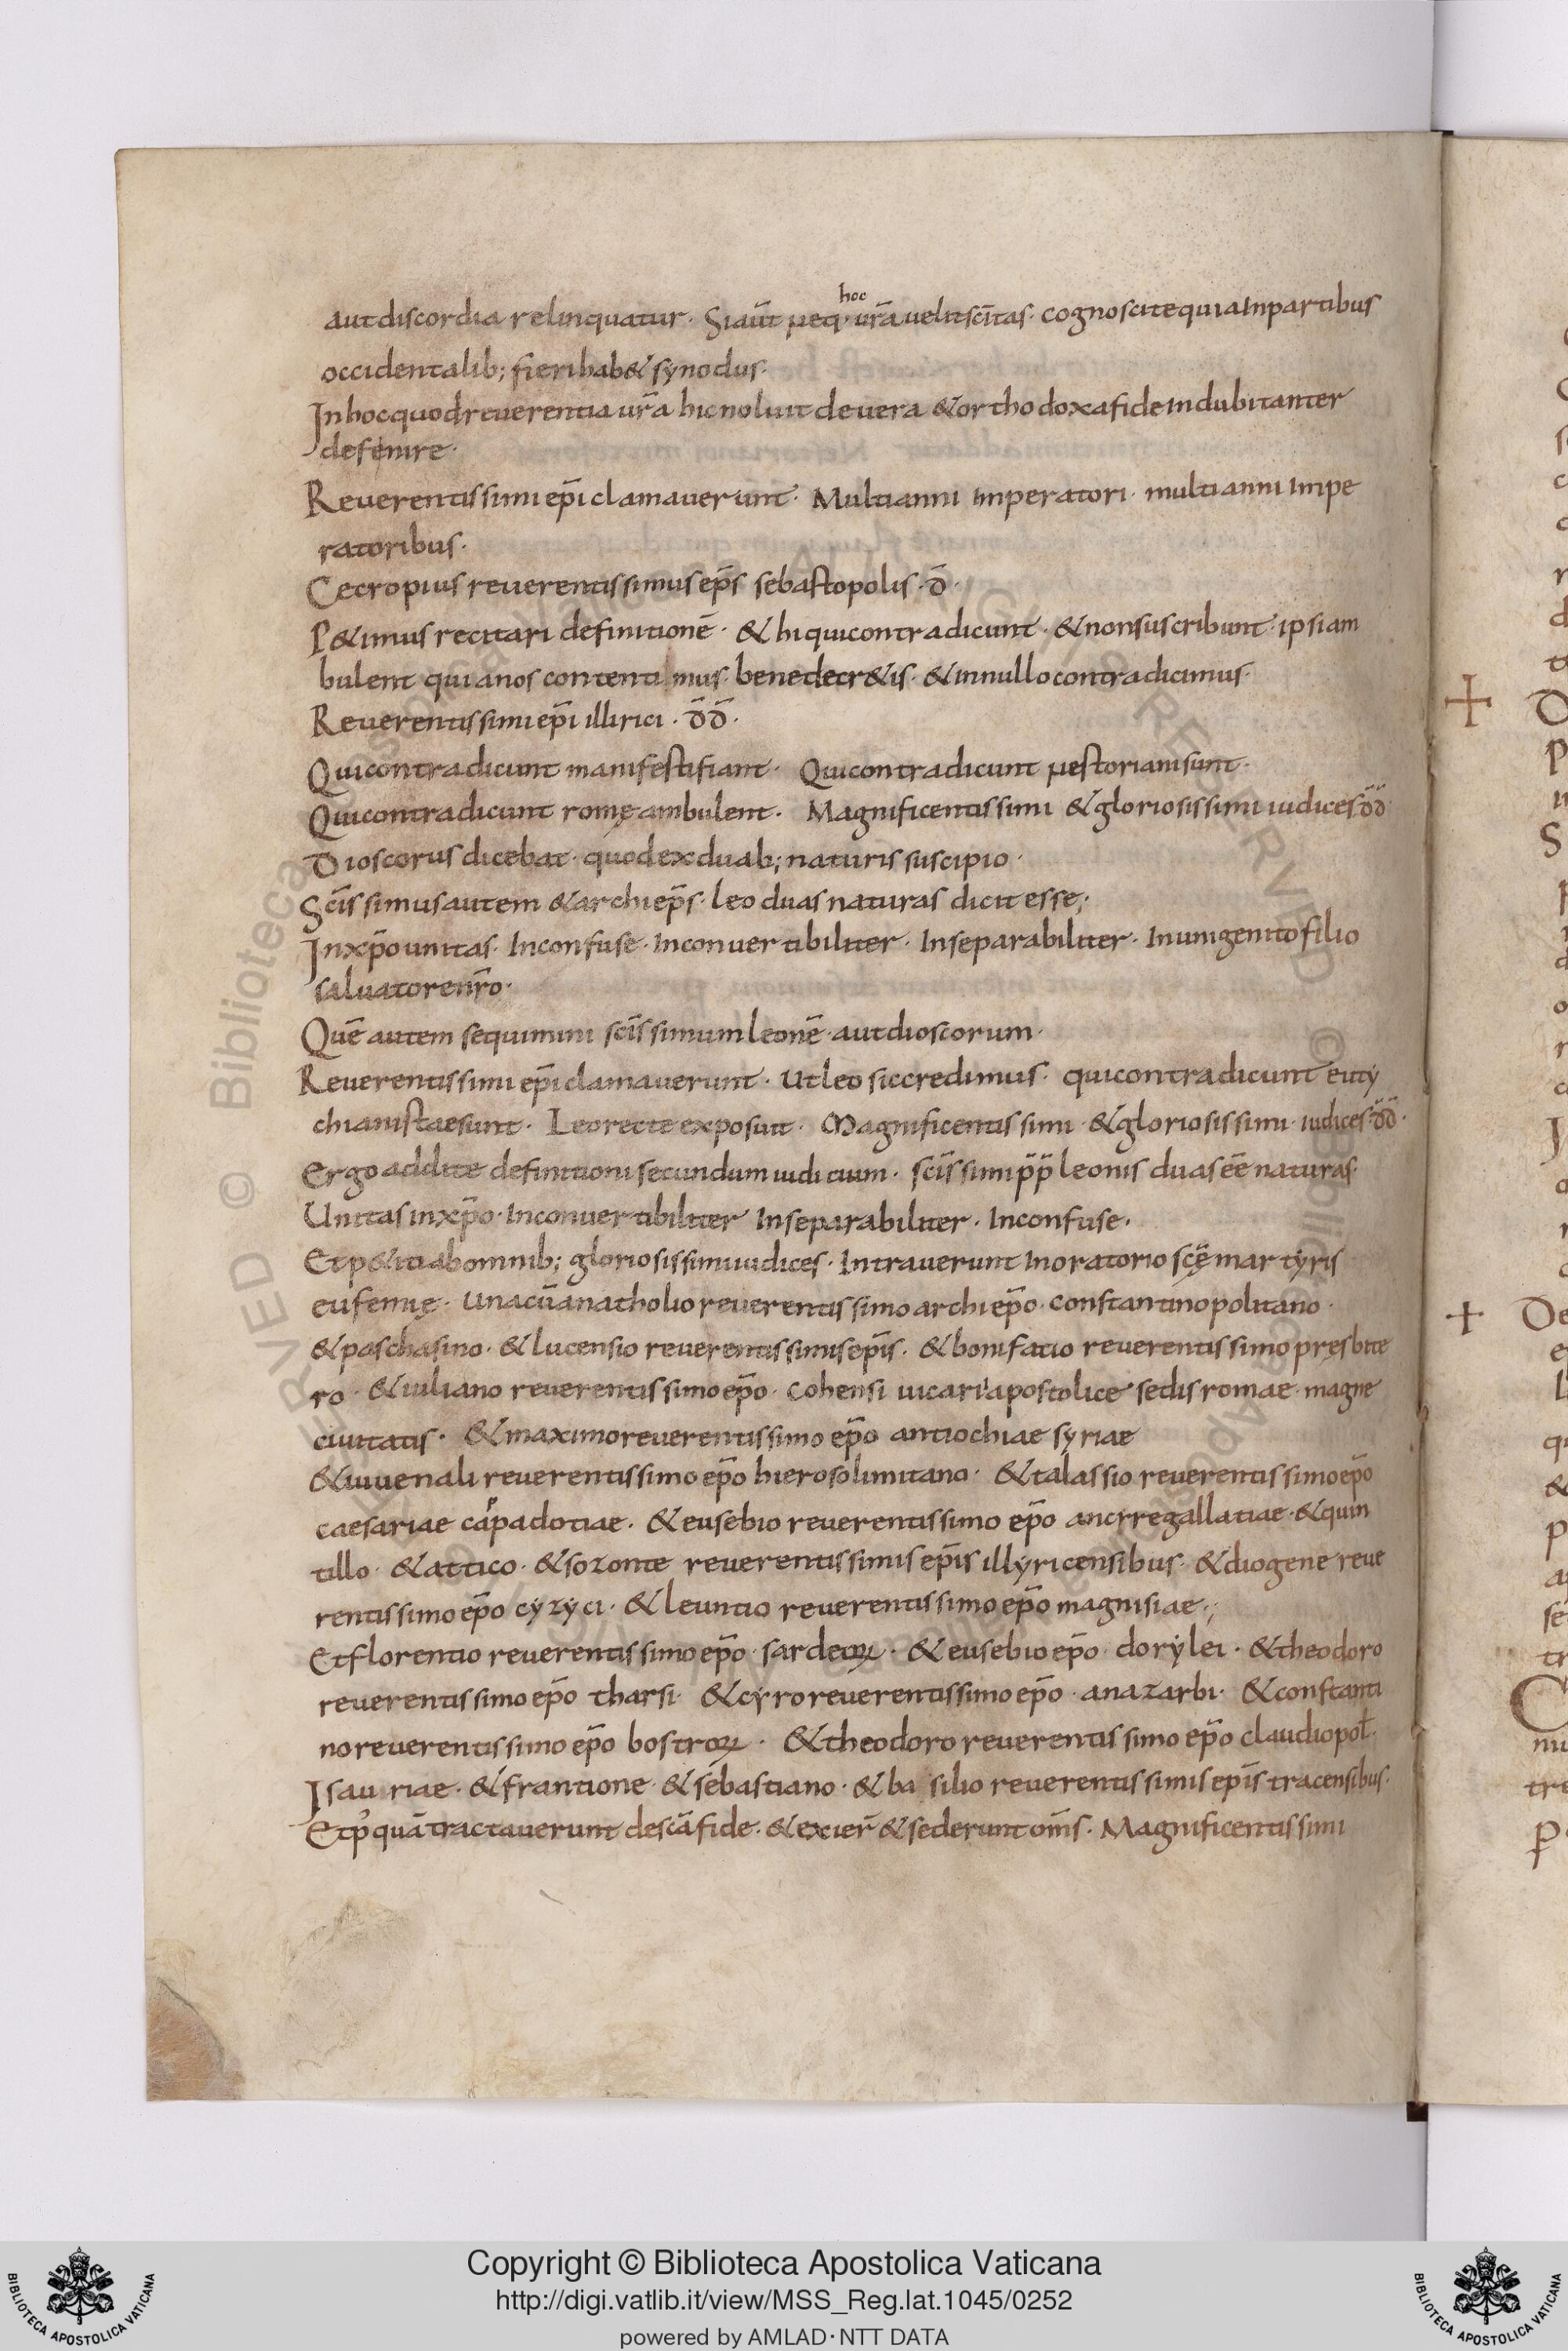 hoc
aut discordia relinquatur· Siaūt neq· ur̄a uelit sc̄itas· cognoscite quia In partibus
occidentalib; fieri hab& synodus·
In hoc quod reuerentia ur̄a hic noluit de uera & orthodoxa fide Indubitanter
defenire·
Reuerentissimi ep̄i clamauerunt· Multi anni Imperatori· multi anni Impe
ratoribus·
Cecropius reuerentissimus ep̄s sebastopolis· d̄·
P&imus recitari definitionē· & hi qui contradicunt· & non suscribunt· ipsi am
bulent qui a nos contenti mus· bene decr&is· & in nullo contradicimus·
Reuerentissimi ep̄i illirici· d̄d̄·
Qui contradicunt manifesti fiant· Qui contradicunt nestoriani sunt·
Qui contradicunt romę ambulent· Magnificentissimi & gloriosissimi iudices d̄d̄
Dioscorus dicebat· quod ex duab; naturis suscipio·
Sc̄issimus autem & archiep̄s· leo duas naturas dicit esse;·
In xp̄o unitas· Inconfuse· Inconuertibiliter· Inseparabiliter· In unigenito filio
saluatore nr̄o·
Quē autem sequimini sc̄issimum leonē· aut dioscorum·
Reuerentissimi ep̄i clamauerunt· ut leo sic credimus· qui contradicunt euty
chianistae sunt· Leo recte exposuit· Magnificentissimi· & gloriosissimi· iudices· d̄d̄·
Ergo addite definitioni secundum iudicium· sc̄issimi p̄p̄ leonis duas eē naturas·
Unitas in xp̄o· Inconuertibiliter Inseparabiliter· Inconfuse·
Et p&iti ab omnib; gloriosissimi iudices· Intrauerunt In oratorio sc̄ę martyris
eufemię· una cū anatholio reuerentissimo archiep̄o· constantinopolitano·
& paschasino· & lucensio reuerentissimis ep̄is· & bonifatio reuerentissimo pręsbite
ro· & iuliano reuerentissimo ep̄o· cohensi uicari apostolice sedis romae· magne
ciuitatis· & maximo reuerentissimo ep̄o antiochiae syriae
& iuuenali reuerentissimo ep̄o hierosolimitano· & talassio reuerentissimo ep̄o
caesariae cappadotiae· & eusebio reuerentissimo ep̄o ancrre gallatiae· & quin
tillo· & attico· & sozonte reuerentissimis ep̄is illyricensibus· & diogene reue
rentissimo ep̄o cyzyci· & leuntio reuerentissimo ep̄o magnisiae·;
Et florentio reuerentissimo ep̄o· sardeoꝝ· & eusebio ep̄o· dorylei· & theodoro
reuerentissimo ep̄o tharsi· & cyro reuerentissimo ep̄o· anazarbi· & constanti
no reuerentissimo ep̄o bostroꝝ· & theodoro reuerentissimo ep̄o claudiopoł·
Isauriae· & frantione· & sebastiano· & ba silio reuerentissimis ep̄is tracensibus·
Et p' quā tractauerunt de sc̄a fide· & exier̄ & sederunt om̄s· Magnificentissimi
Copyright © Biblioteca Apostolica Vaticana
http://digi.vatlib.it/view/MSS_Reg.lat.1045/0252
powered by AMLAD·NTT DATA
BIBLIOTECA APOSTOLICA VATICANA
BIBLIOTECA APOSTOLICA VATICANA